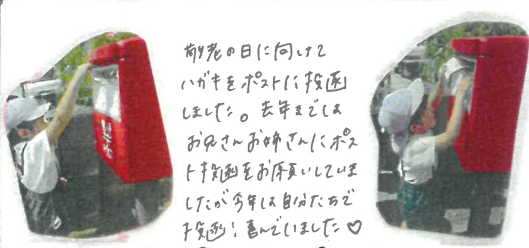 敬老の日に向けて
ハガキをポストに投函
しました。去年までは
お兄さんお姉さんにポス
ト投函をお願いしていま
したが今年は自分たちで
投函!喜んでいました♡